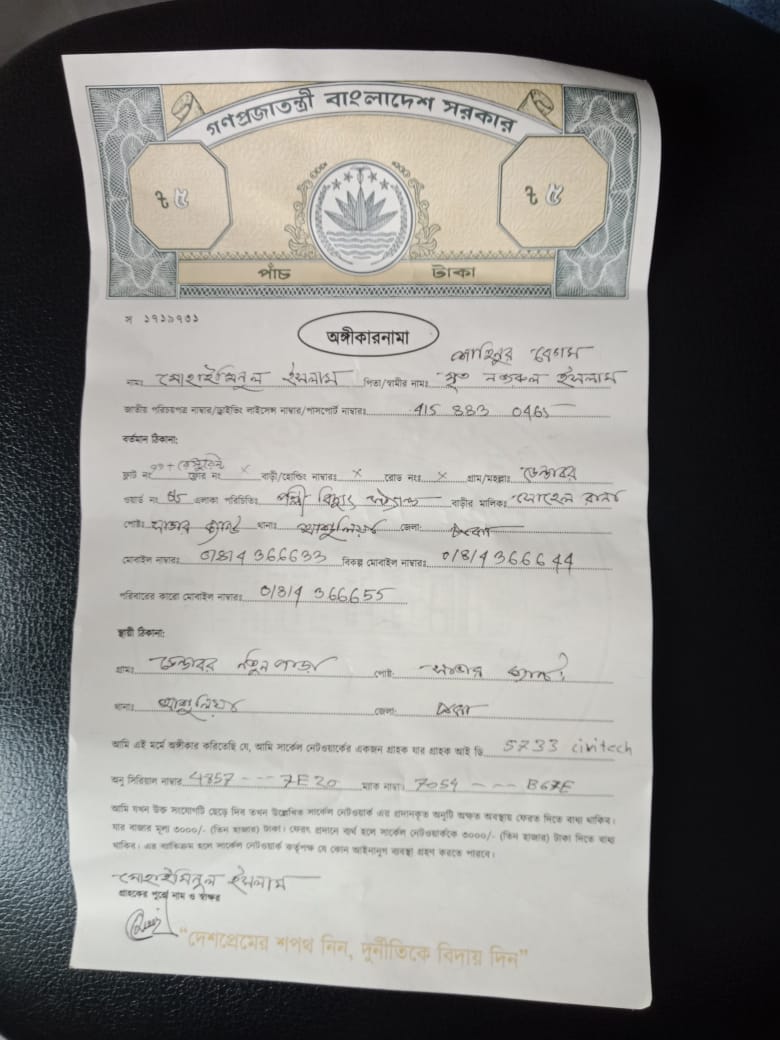 গণপ্রজাতন্ত্রী বাংলাদেশ সরকার
৳ ৫ ৳ ৫
পাঁচ টাকা
স ১৭১৯৭৩১
অঙ্গীকারনামা
শাহিনুর বেগম
নাম: মোহাইমিনুল ইসলাম পিতা/স্বামীর নাম: মৃত নজরুল ইসলাম
জাতীয় পরিচয়পত্র নাম্বার/ড্রাইভিং লাইসেন্স নাম্বার/পাসপোর্ট নাম্বারঃ 415 883 0465
বর্তমান ঠিকানা:
ফ্লাট নং ফ্লোর নং X বাড়ী/হোল্ডিং নাম্বারঃ X রোড নংঃ X গ্রাম/মহল্লাঃ ডেন্ডাবর
ওয়ার্ড নং 05 এলাকা পরিচিতিঃ পল্লী বিদ্যুৎ বাড়ীর মালিকঃ সোহেল রানা
পোষ্টঃ সাভার ক্যান্ট থানাঃ আশুলিয়া জেলা: ঢাকা
মোবাইল নাম্বারঃ 01814 366633 বিকল্প মোবাইল নাম্বারঃ 01814 366644
পরিবারের কারো মোবাইল নাম্বারঃ 01814 366655
স্থায়ী ঠিকানা:
গ্রামঃ ডেন্ডাবর নতুন পাড়া পোষ্ট: সাভার ক্যান্ট:
থানাঃ আশুলিয়া জেলা: ঢাকা
আমি এই মর্মে অঙ্গীকার করিতেছি যে, আমি সার্কেল নেটওয়ার্কের একজন গ্রাহক যার গ্রাহক আই ডি 5733 civitech
অনু সিরিয়াল নাম্বার 4857 --- 7E20 ম্যাক নাম্বার: 7054 --- B67E
আমি যখন উক্ত সংযোগটি ছেড়ে দিব তখন উল্লেখিত সার্কেল নেটওয়ার্ক এর প্রদানকৃত অনুটি অক্ষত অবস্থায় ফেরত দিতে বাধ্য থাকিব।
যার বাজার মূল্য ৩০০০/- (তিন হাজার) টাকা। ফেরৎ প্রদানে ব্যর্থ হলে সার্কেল নেটওয়ার্ককে ৩০০০/- (তিন হাজার) টাকা দিতে বাধ্য
থাকিব। এর ব্যতিক্রম হলে সার্কেল নেটওয়ার্ক কর্তৃপক্ষ যে কোন আইনানুগ ব্যবস্থা গ্রহণ করতে পারবে।
মোহাইমিনুল ইসলাম
গ্রাহকের পুরো নাম ও স্বাক্ষর
“দেশপ্রেমের শপথ নিন, দুর্নীতিকে বিদায় দিন”